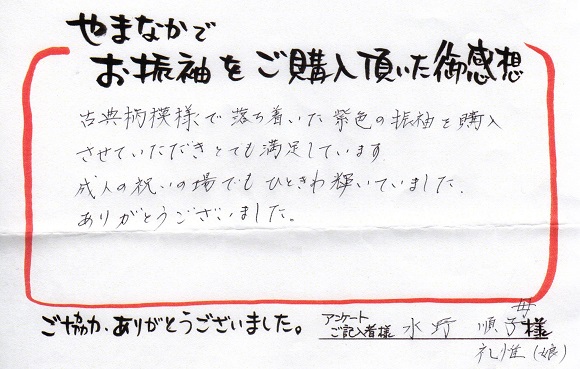 やまなかで
お振袖をご購入頂いた御感想
古典柄模様で落ち着いた紫色の振袖を購入
させていただきとても満足しています
成人の祝いの場でもひときわ輝いていました。
ありがとうございました。
ご協力、ありがとうございました。
アンケート
ご記入者様 水野 順子様
母
礼惟(娘)